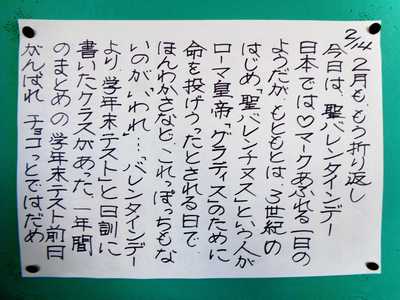 2/14
2月も、もう折り返し
今日は、聖バレンタインデー
日本では♡マークあふれる一日の
ようだが、もともとは、3世紀の
はじめ「聖バレンチヌス」という人が
ローマ皇帝「グラティス」のために
命を投げうったとされる日で
ほんわかさなど、これっぽっちもな
いのが、いわれ…「バレンタインデー
より、学年末テスト」と日訓に
書いたクラスがあった。一年間
のまとめの学年末テスト前日
がんばれ チョコっとではだめ